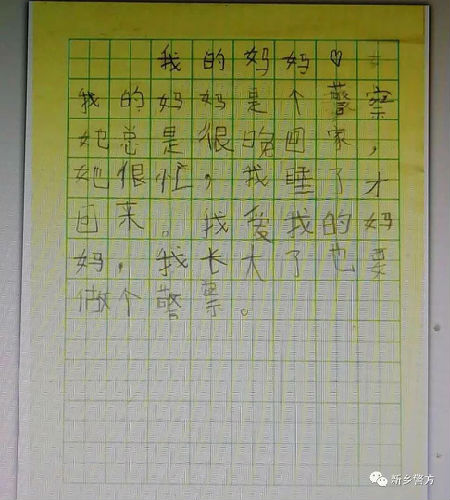 我的妈妈♡
我的妈妈是个警察
她总是很晚回家，
她很忙，我睡了才
回来。我爱我的妈
妈，我长大了也要
做个警察。
新乡警方